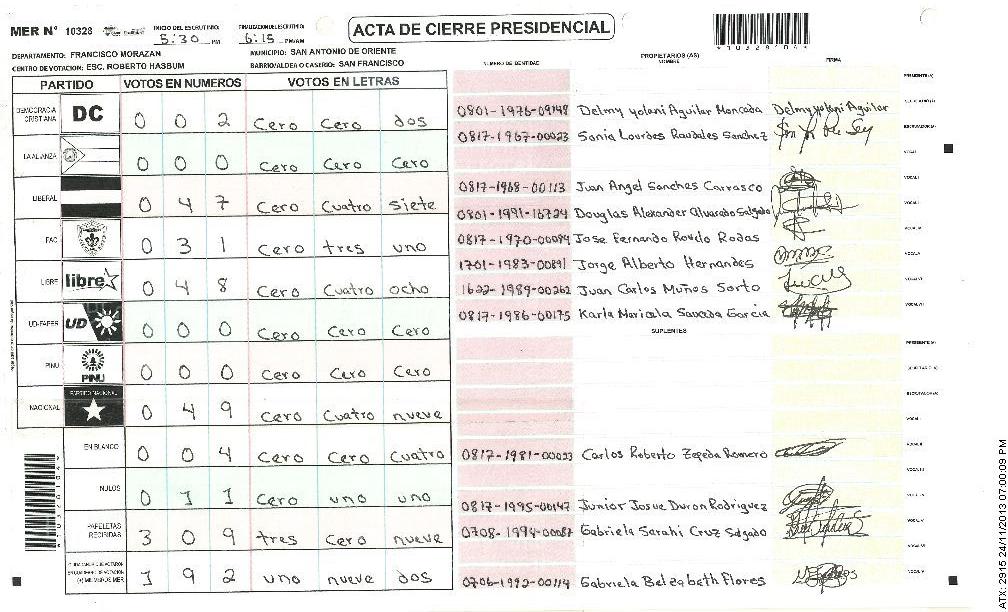 MER N° 10328 INICIO DEL ESCRUTINIO: 5:30 PM FINALIZACION DEL ESCRUTINIO: 6:15 PM/AM
ACTA DE CIERRE PRESIDENCIAL
DEPARTAMENTO: FRANCISCO MORAZAN MUNICIPIO: SAN ANTONIO DE ORIENTE
CENTRO DE VOTACION: ESC. ROBERTO HASBUM BARRIO/ALDEA O CASERIO: SAN FRANCISCO
PARTIDO VOTOS EN NUMEROS VOTOS EN LETRAS
DEMOCRACIA CRISTIANA DC 0 0 2 Cero Cero dos
LA ALIANZA 0 0 0 Cero Cero Cero
LIBERAL 0 4 7 Cero Cuatro siete
FAC 0 3 1 Cero tres uno
LIBRE libre 0 4 8 Cero Cuatro ocho
UD-FAPER UD 0 0 0 Cero Cero Cero
PINU PINU 0 0 0 Cero Cero Cero
NACIONAL PARTIDO NACIONAL 0 4 9 Cero Cuatro nueve
EN BLANCO 0 0 4 Cero Cero Cuatro
NULOS 0 1 1 Cero uno uno
PAPELETAS RECIBIDAS 3 0 9 tres Cero nueve
1 9 2 uno nueve dos
NUMERO DE IDENTIDAD PROPIETARIOS (AS) NOMBRE FIRMA
0801-1976-09148 Delmy yolani Aguilar Moncada Delmy yolani Aguilar
0817-1967-00023 Sonia Lourdes Raudales Sanchez
0817-1968-00113 Juan Angel Sanches Carrasco
0801-1991-16724 Douglas Alexander Alvarado Salgado
0817-1970-00094 Jose Fernando Rodas
1701-1983-00891 Jorge Alberto Hernandes
1622-1989-00262 Juan Carlos Muños Sorto
0817-1986-00175 Karla Maricela Garcia
SUPLENTES
0817-1981-00023 Carlos Roberto Zepeda Romero
0817-1995-00147 Junior Josue Duron Rodriguez
0708-1994-00087 Gabriela Sarahi Cruz Salgado
0706-1992-00114 Gabriela Belzabeth Flores
ATX: 2915 24/11/2013 07:00:09 PM